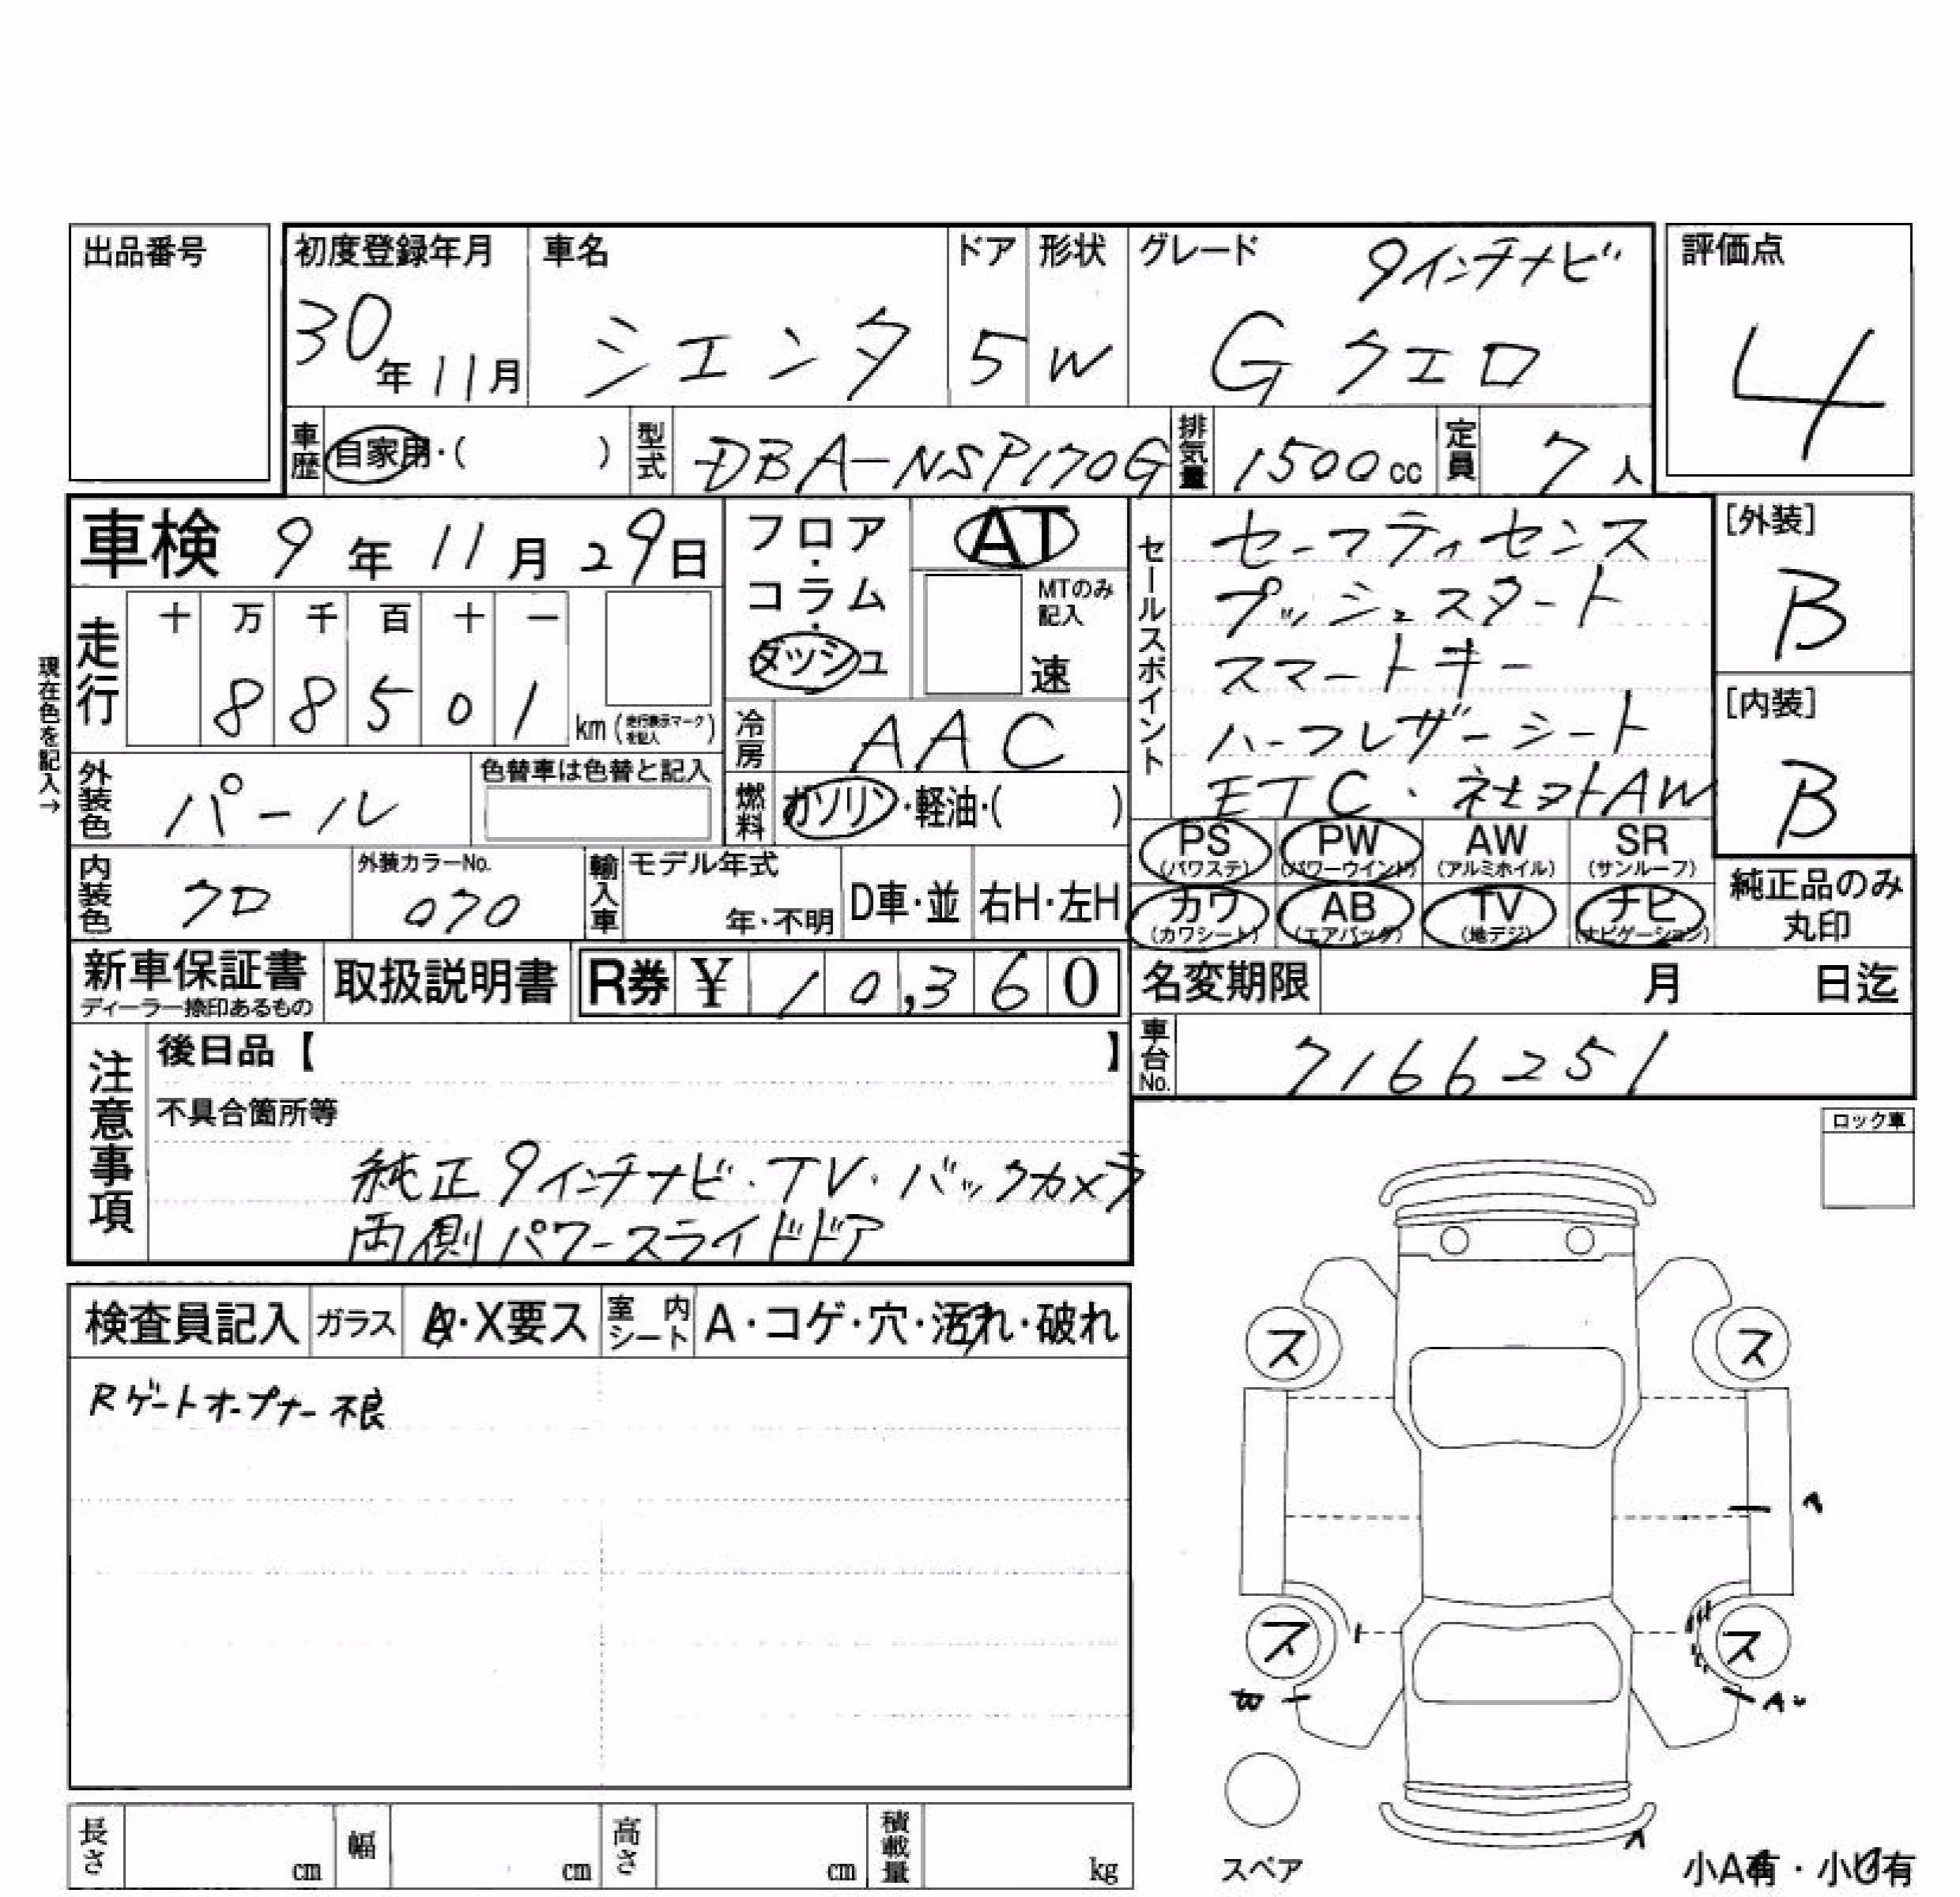 出品番号
初度登録年月 車名 ドア 形状 グレード 9インチナビ 評価点
30年11月 シエンタ 5 W G クエロ 4
車歴 自家用・( ) 型式 DBA-NSP170G 排気量 1500cc 定員 7人
車検 9年11月29日 フロア・コラム・ダッシュ AT
MTのみ記入 速
セールスポイント
セーフティセンス
プッシュスタート
スマートキー
ハーフレザーシート
ETC・社ヌケAW
[外装] B
[内装] B
現在色を記入→
走行 十 万 千 百 十 一
88501 km (走行表示マークを記入)
冷房 AAC
外装色 パール 色替車は色替と記入
燃料 ガソリン・軽油・( )
PS (パワステ) PW (パワーウインド) AW (アルミホイル) SR (サンルーフ)
カワ (カワシート) AB (エアバッグ) TV (地デジ) ナビ (ナビゲーション)
純正品のみ丸印
内装色 クロ 外装カラーNo. 070 輸入車 モデル年式 年・不明 D車・並 右H・左H
新車保証書 ディーラー捺印あるもの 取扱説明書 R券 ¥ 10,360
名変期限 月 日迄
車台No. 7166251
注意事項
後日品【 】
不具合箇所等
純正9インチナビ・TV・バックカメラ
両側パワースライドドア
ロック車
検査員記入 ガラス A・X要ス 室内シート A・コゲ・穴・汚れ・破れ
Rゲートオープナー不良
ス ス
ス ス
W
A
スペア
小A有・小U有
長さ cm 幅 cm 高さ cm 積載量 kg